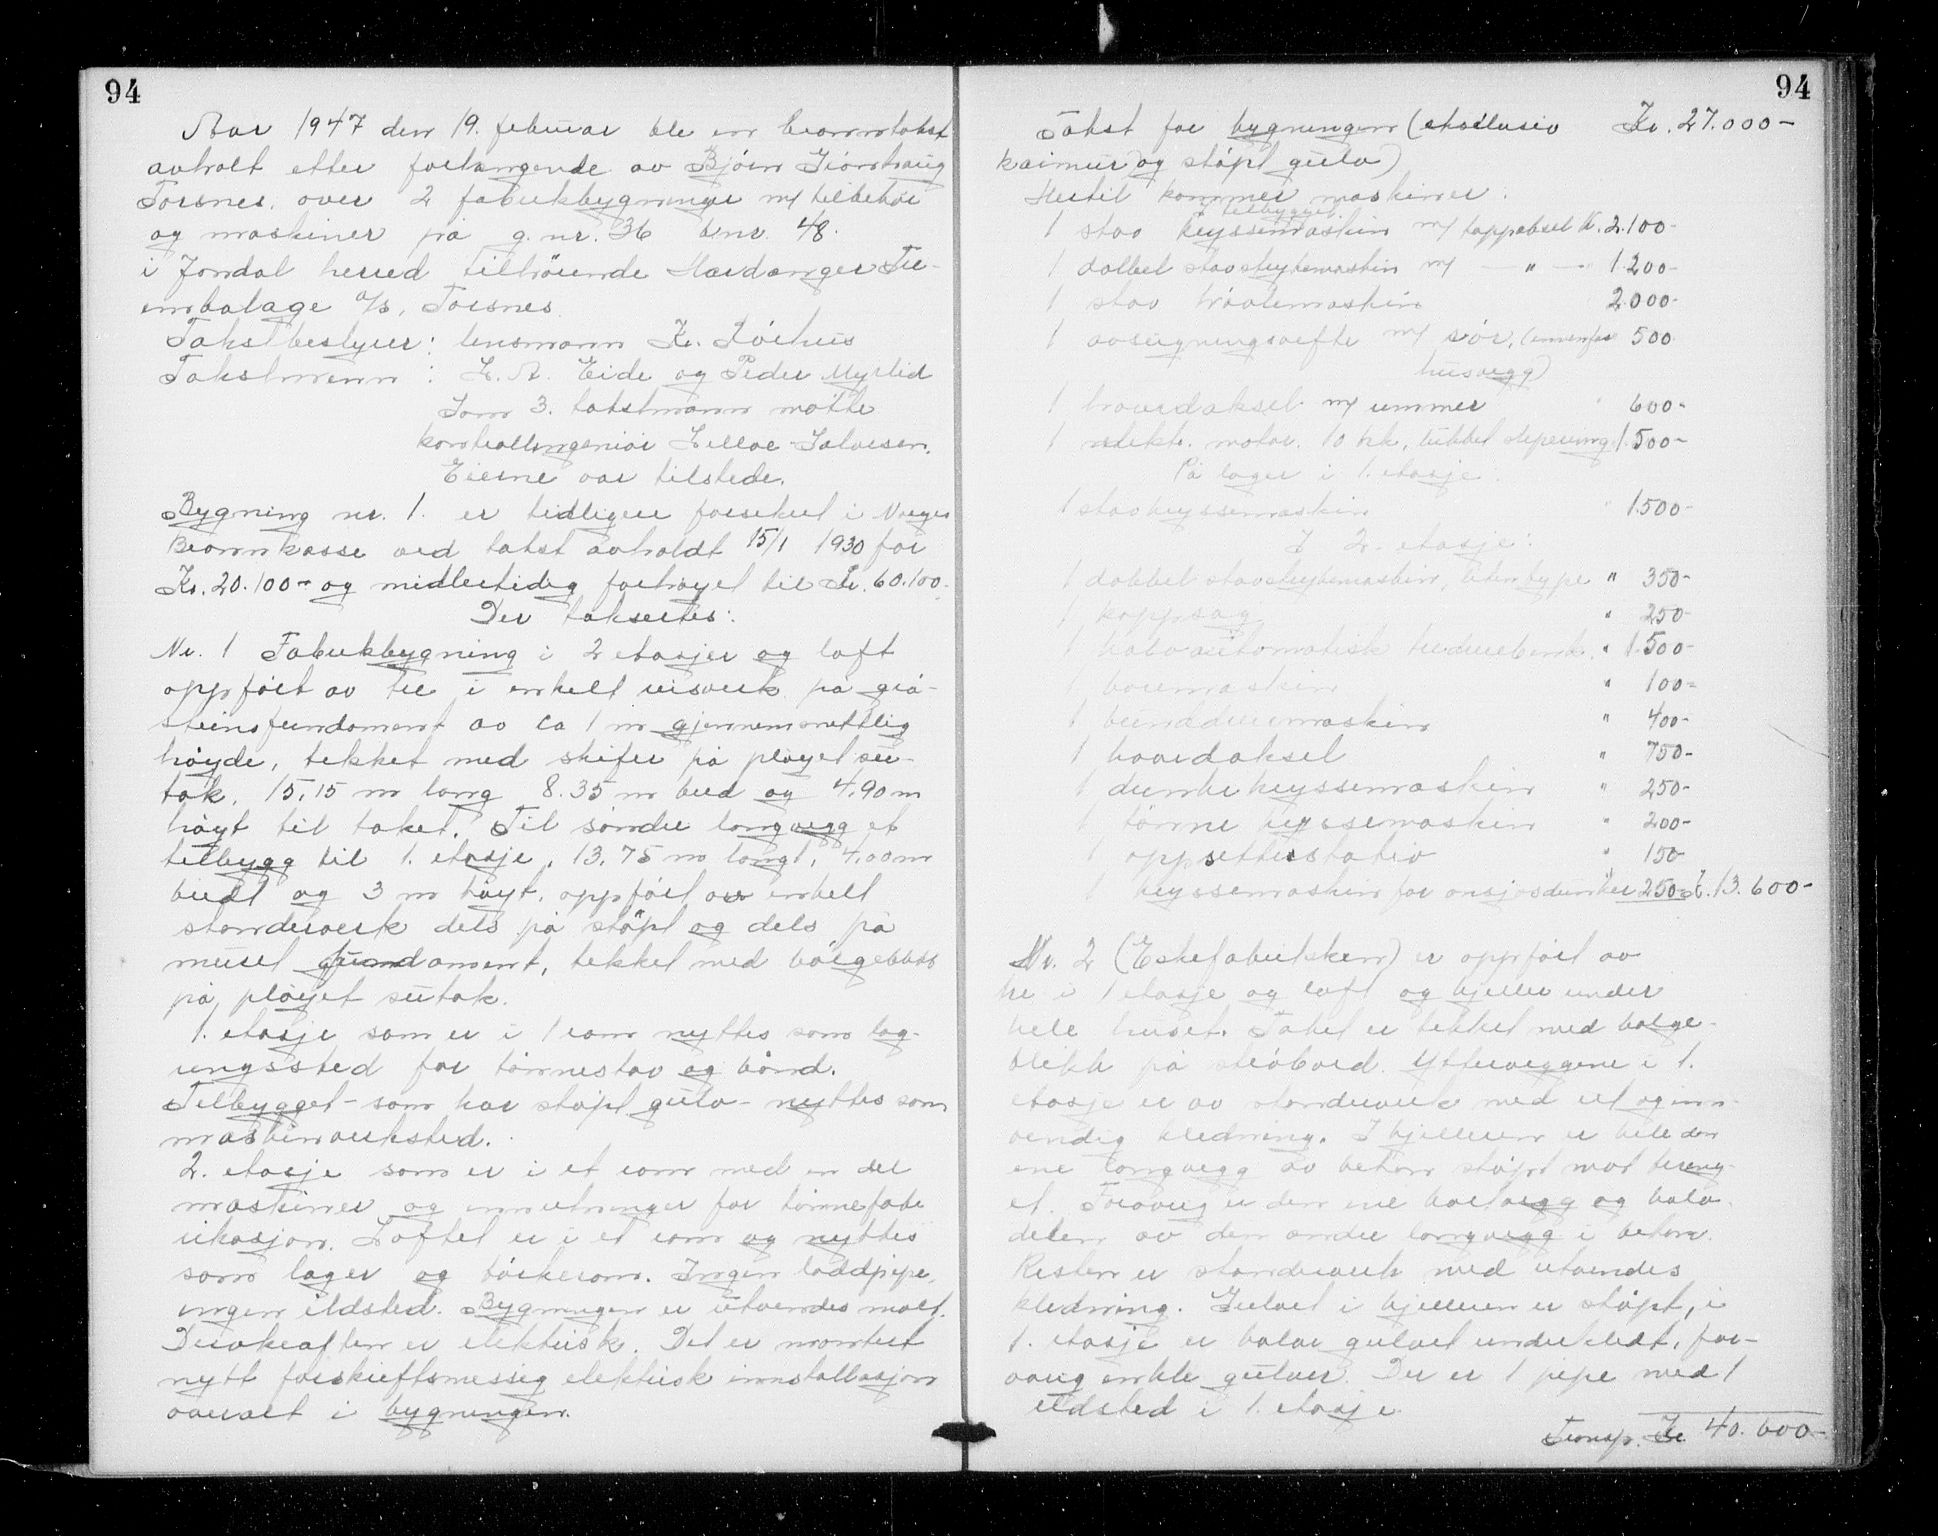 94
Aar 1947 den 19. februar ble en branntakst
avholt etter forlangende av Bjørn
Torsnes. over 2 fabrikkbygninger m/ tilbehør
og maskiner på g.nr. 36 bnr. 48.
i Jondal herred tilhørende Hardanger Tre-
emballage a/s, Torsnes.
Takstbestyrer: lensmann Kr.
Takstmenn: L. A. Eide og Peder Myrlid
Som 3. takstmann møtte
kontrollingeniør Lilloe-Salvesen.
Eierne var tilstede.
Bygning nr. 1. er tidligere forsikret i Norges
Brannkasse ved takst avholdt 15/1 1930 for
Kr. 20.100- og midlertidig forhøyet til Kr. 60.100-
Der taksertes:
Nr. 1 Fabrikkbygning i 2 etasjer og loft
oppført av tre i enkelt reisverk på grå-
steinsfundament av ca 1 m gjennemsnittlig
høyde, tekket med skifer på pløyet su-
tak. 15,15 m lang 8.35 m bred og 4,90 m
høyt til taket. Til søndre langvegg et
tilbygg til 1. etasje, 13,75 m langt, 4,00 m
bredt og 3 m høyt. oppført av enkelt
stenderverk dels på støpt og dels på
muret fundament, tekket med bølgeblikk
på pløyet sutak.
1. etasje som er i 1 rom nyttes som lag-
ringssted for tønnestav og bånd.
Tilbygget - som har støpt gulv - nyttes som
maskinverksted.
2. etasje som er i et rom med en del
maskiner og innretninger for tønnefabr
ikasjon. Loftet er i et rom og nyttes
som lager og tørkerom. Ingen loddpipe,
ingen ildsted. Bygningen er utvendes malt.
Drivkraften er elektrisk. Det er montert
nytt forskriftsmessig elektrisk innstallasjon
overalt i bygningen.
94
Takst for bygningen (eksklusiv Kr. 27.000-
kaimur og støpt gulv)
Hertil kommer maskiner:
i tilbygget
1 stav kryssemaskin m/ toppaksel Kr. 2.100-
1 dobbel stavstrykemaskin m/ — " — 1.200-
1 stav høvlemaskin 2.000-
1 avsugningsvifte m/ rør, (innenfor 500
husvegg)
1 hovedaksel m/ remmer " 600-
1 elektr. motor. 10 hk, 1.500-
På lager i 1. etasje.
1 stavkryssemaskin " 1.500-
I 2. etasje:
1 dobbel stavstrykemaskin, liten type " 350-
1 kappsag " 250-
1 halvautomatisk " 1.500-
1 boremaskin " 100-
1 " 400-
1 hovedaksel " 750-
1 dunkekryssemaskin " 250-
1 tønne kryssemaskin " 200-
1 oppsetterstativ " 150
1 kryssemaskin for ansjosdunker " 250- Kr. 13.600-
Nr. 2 (Eskefabrikken) er oppført av
tre i 1 etasje og loft og kjeller under
hele huset. Taket er tekket med bølge-
blekk på strøbord. Ytterveggene i 1.
etasje er av stenderverk med ut og inn-
vendig kledning. I kjelleren er hele den
ene langvegg av betong støpt mot terreng-
et. Forøvrig er den ene kortvegg og halv-
delen av den andre langvegg i betong.
Resten er stenderverk med utvendes
kledning. Gulvet i kjelleren er støpt, i
1. etasje er halve gulvet underkledt, for-
øvrig enkle gulver. Der er 1 pipe med 1
ildsted i 1. etasje.
Transp. Kr. 40.600-